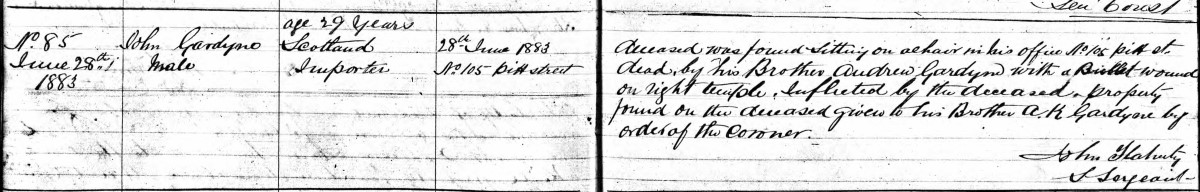 Sen Const
age 29 Years
No. 85 John Gardyne Scotland 28th June 1883
June 28th Male Importer No 105 Pitt street
1883
deceased was found sitting on a chair in his office No 105 Pitt st.
dead, by his Brother Andrew Gardyne with a Bullet wound
on right temple. Inflicted by the deceased. property
found on the deceased given to his Brother A. K Gardyne by
order of the Coroner.
John Flaherty
S Sergeant